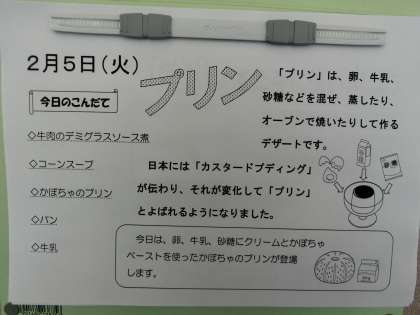 2月5日(火)
プリン
今日のこんだて
◇牛肉のデミグラスソース煮
◇コーンスープ
◇かぼちゃのプリン
◇パン
◇牛乳
「プリン」は、卵、牛乳、
砂糖などを混ぜ、蒸したり、
オーブンで焼いたりして作る
デザートです。
日本には「カスタードプディング」
が伝わり、それが変化して「プリン」
とよばれるようになりました。
今日は、卵、牛乳、砂糖にクリームとかぼちゃ
ペーストを使ったかぼちゃのプリンが登場
します。